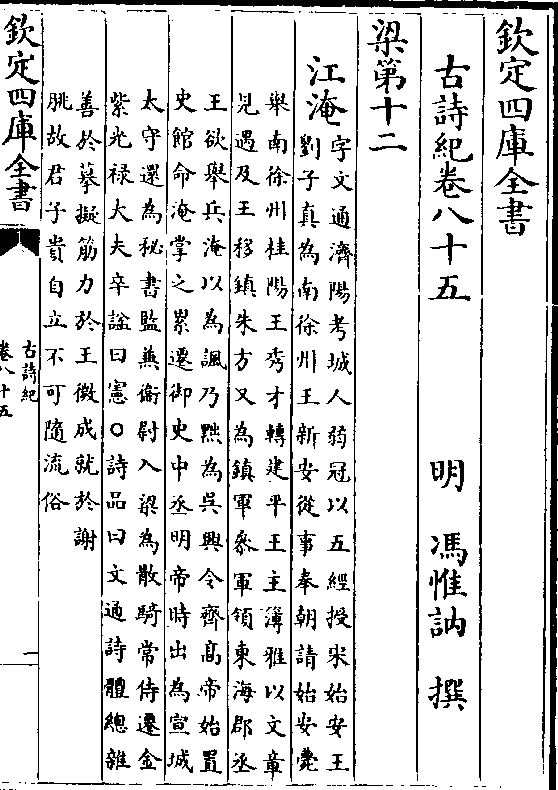 欽定四庫全書
古詩紀卷八十五
明 馮惟訥 撰
梁第十二
江淹
字文通濟陽考城人弱冠以五經授宋始安王
劉子真為南徐州王新安從事奉朝請始安薨
舉南徐州桂陽王秀才轉建平王主簿雅以文章
見遇及王移鎮朱方又為鎮軍參軍領東海郡丞
王欲舉兵淹以為諷乃黜為吳興令齊髙帝始置
史館命淹掌之累遷御史中丞明帝時出為宣城
太守還為秘書監兼衛尉入梁為散騎常侍遷金
紫光禄大夫卒諡曰憲○詩品曰文通詩體總雜
善於摹擬筋力於王微成就於謝
朓故君子貴自立不可隨流俗
欽定四庫全書
古詩紀
卷八十五
一